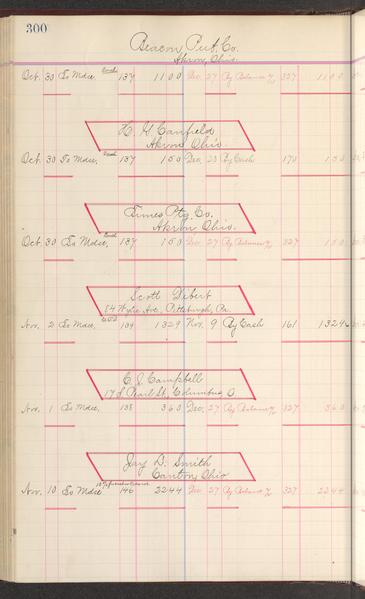 300
Beacon Pub. Co.
Akron, Ohio.
Oct. 30 To Mdse. 137 11 00 Dec. 27 By Balance 327 11 00
H. H. Canfield
Akron Ohio.
Oct. 30 To Mdse, 137 1 50 Dec. 23 By Cash 170 1 50
Times Ptg. Co.
Akron Ohio.
Oct. 30 To Mdse, 137 1 50 Dec. 27 By Balance 327 1 50
Scott Dibert
Wylie Ave, Pittsburgh, Pa.
Nov. 2 To Mdse, 139 13 29 Nov. 9 By Cash 161 13 24
C. J. Campbell
17 S. Pearl St, Columbus O.
Nov. 1 To Mdse, 138 3 60 Dec. 27 By Balance 327 3 60
Jay D. Smith
Canton, Ohio
Nov. 10 To Mdse 146 22 44 Dec 27 By Balance 327 22 44